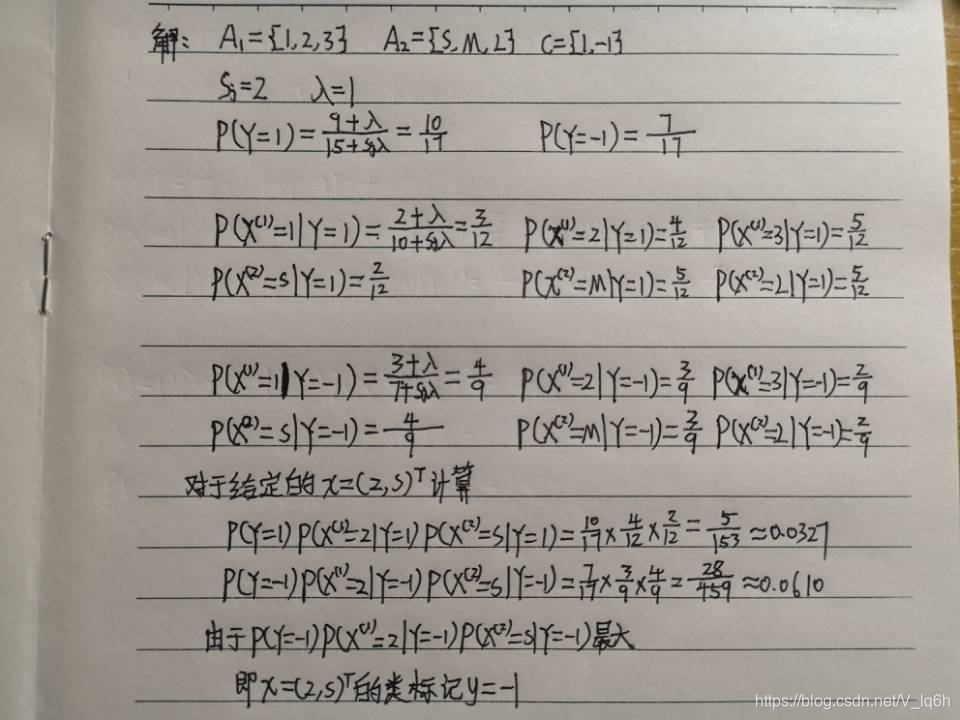 解: A₁={1,2,3} A₂={S,M,L} C={1,-1}
Sⱼ=2 λ=1
P(Y=1)=(9+λ)/(15+Sⱼλ)=10/17 P(Y=-1)=7/17
P(X⁽¹⁾=1|Y=1)=(2+λ)/(10+Sⱼλ)=3/12 P(X⁽¹⁾=2|Y=1)=4/12 P(X⁽¹⁾=3|Y=1)=5/12
P(X⁽²⁾=S|Y=1)=2/12 P(X⁽²⁾=M|Y=1)=5/12 P(X⁽²⁾=L|Y=1)=5/12
P(X⁽¹⁾=1|Y=-1)=(3+λ)/(7+Sⱼλ)=4/9 P(X⁽¹⁾=2|Y=-1)=3/9 P(X⁽¹⁾=3|Y=-1)=2/9
P(X⁽²⁾=S|Y=-1)=4/9 P(X⁽²⁾=M|Y=-1)=3/9 P(X⁽²⁾=L|Y=-1)=2/9
对于给定的x=(2,S)ᵀ计算
P(Y=1)P(X⁽¹⁾=2|Y=1)P(X⁽²⁾=S|Y=1)=10/17×4/12×2/12=5/153≈0.0327
P(Y=-1)P(X⁽¹⁾=2|Y=-1)P(X⁽²⁾=S|Y=-1)=7/17×3/9×4/9=28/459≈0.0610
由于P(Y=-1)P(X⁽¹⁾=2|Y=-1)P(X⁽²⁾=S|Y=-1)最大
即x=(2,S)ᵀ的类标记y=-1
https://blog.csdn.net/V_lq6h